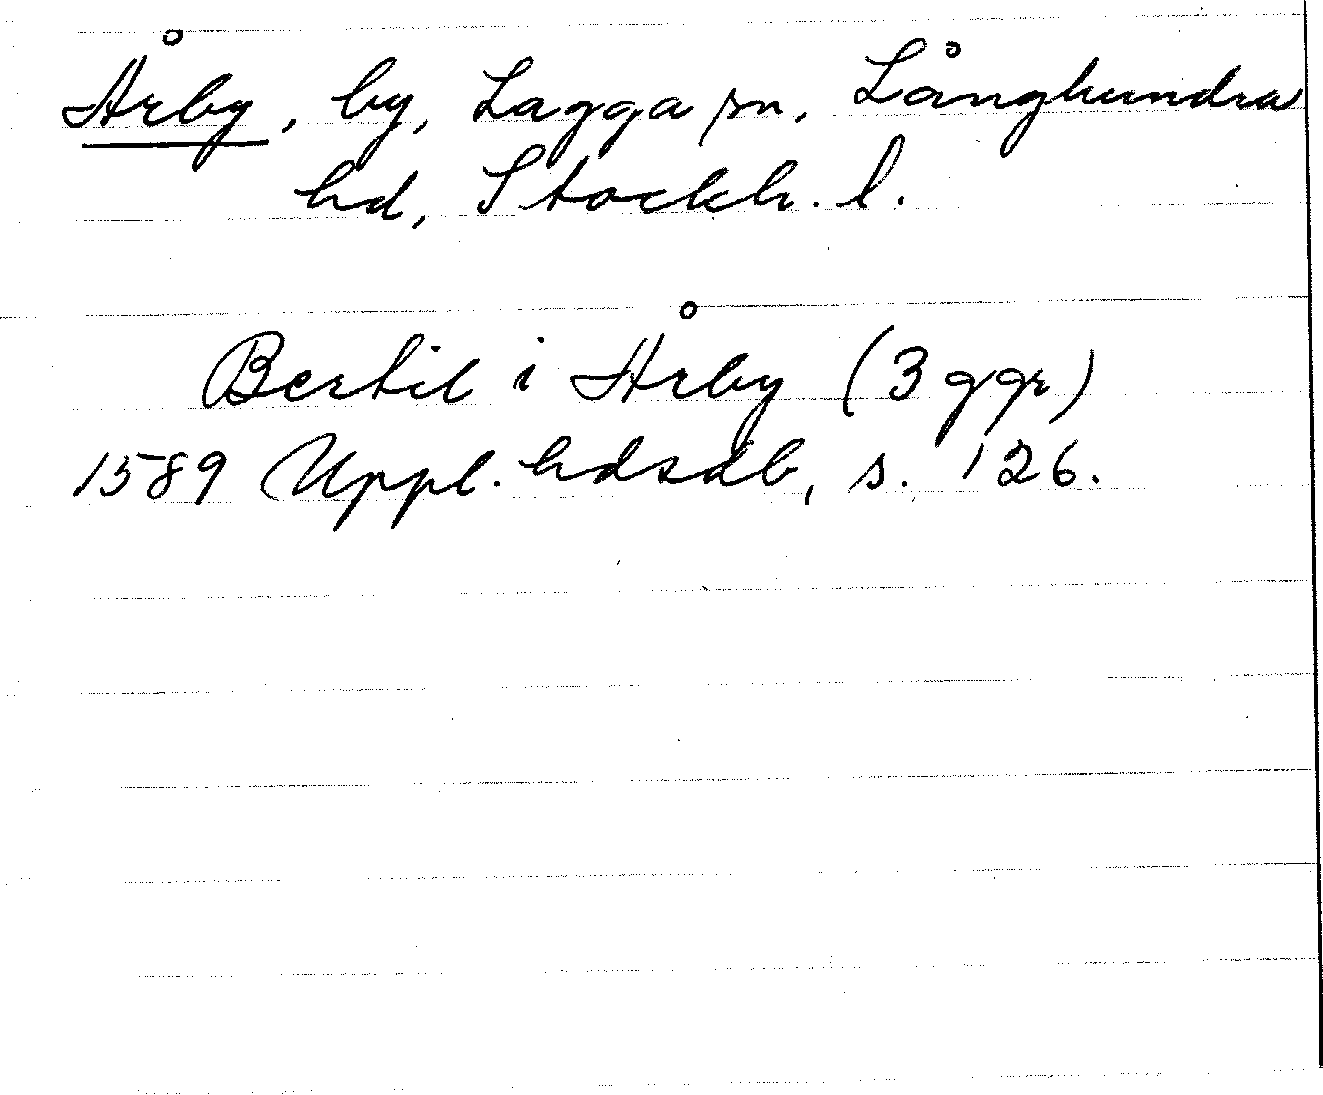 Årby, by, Lagga sn, Långhundra
hd, Stockh. l.
Bertil i Årby (3 ggr)
1589 Uppl. hdsdb, s. 126.